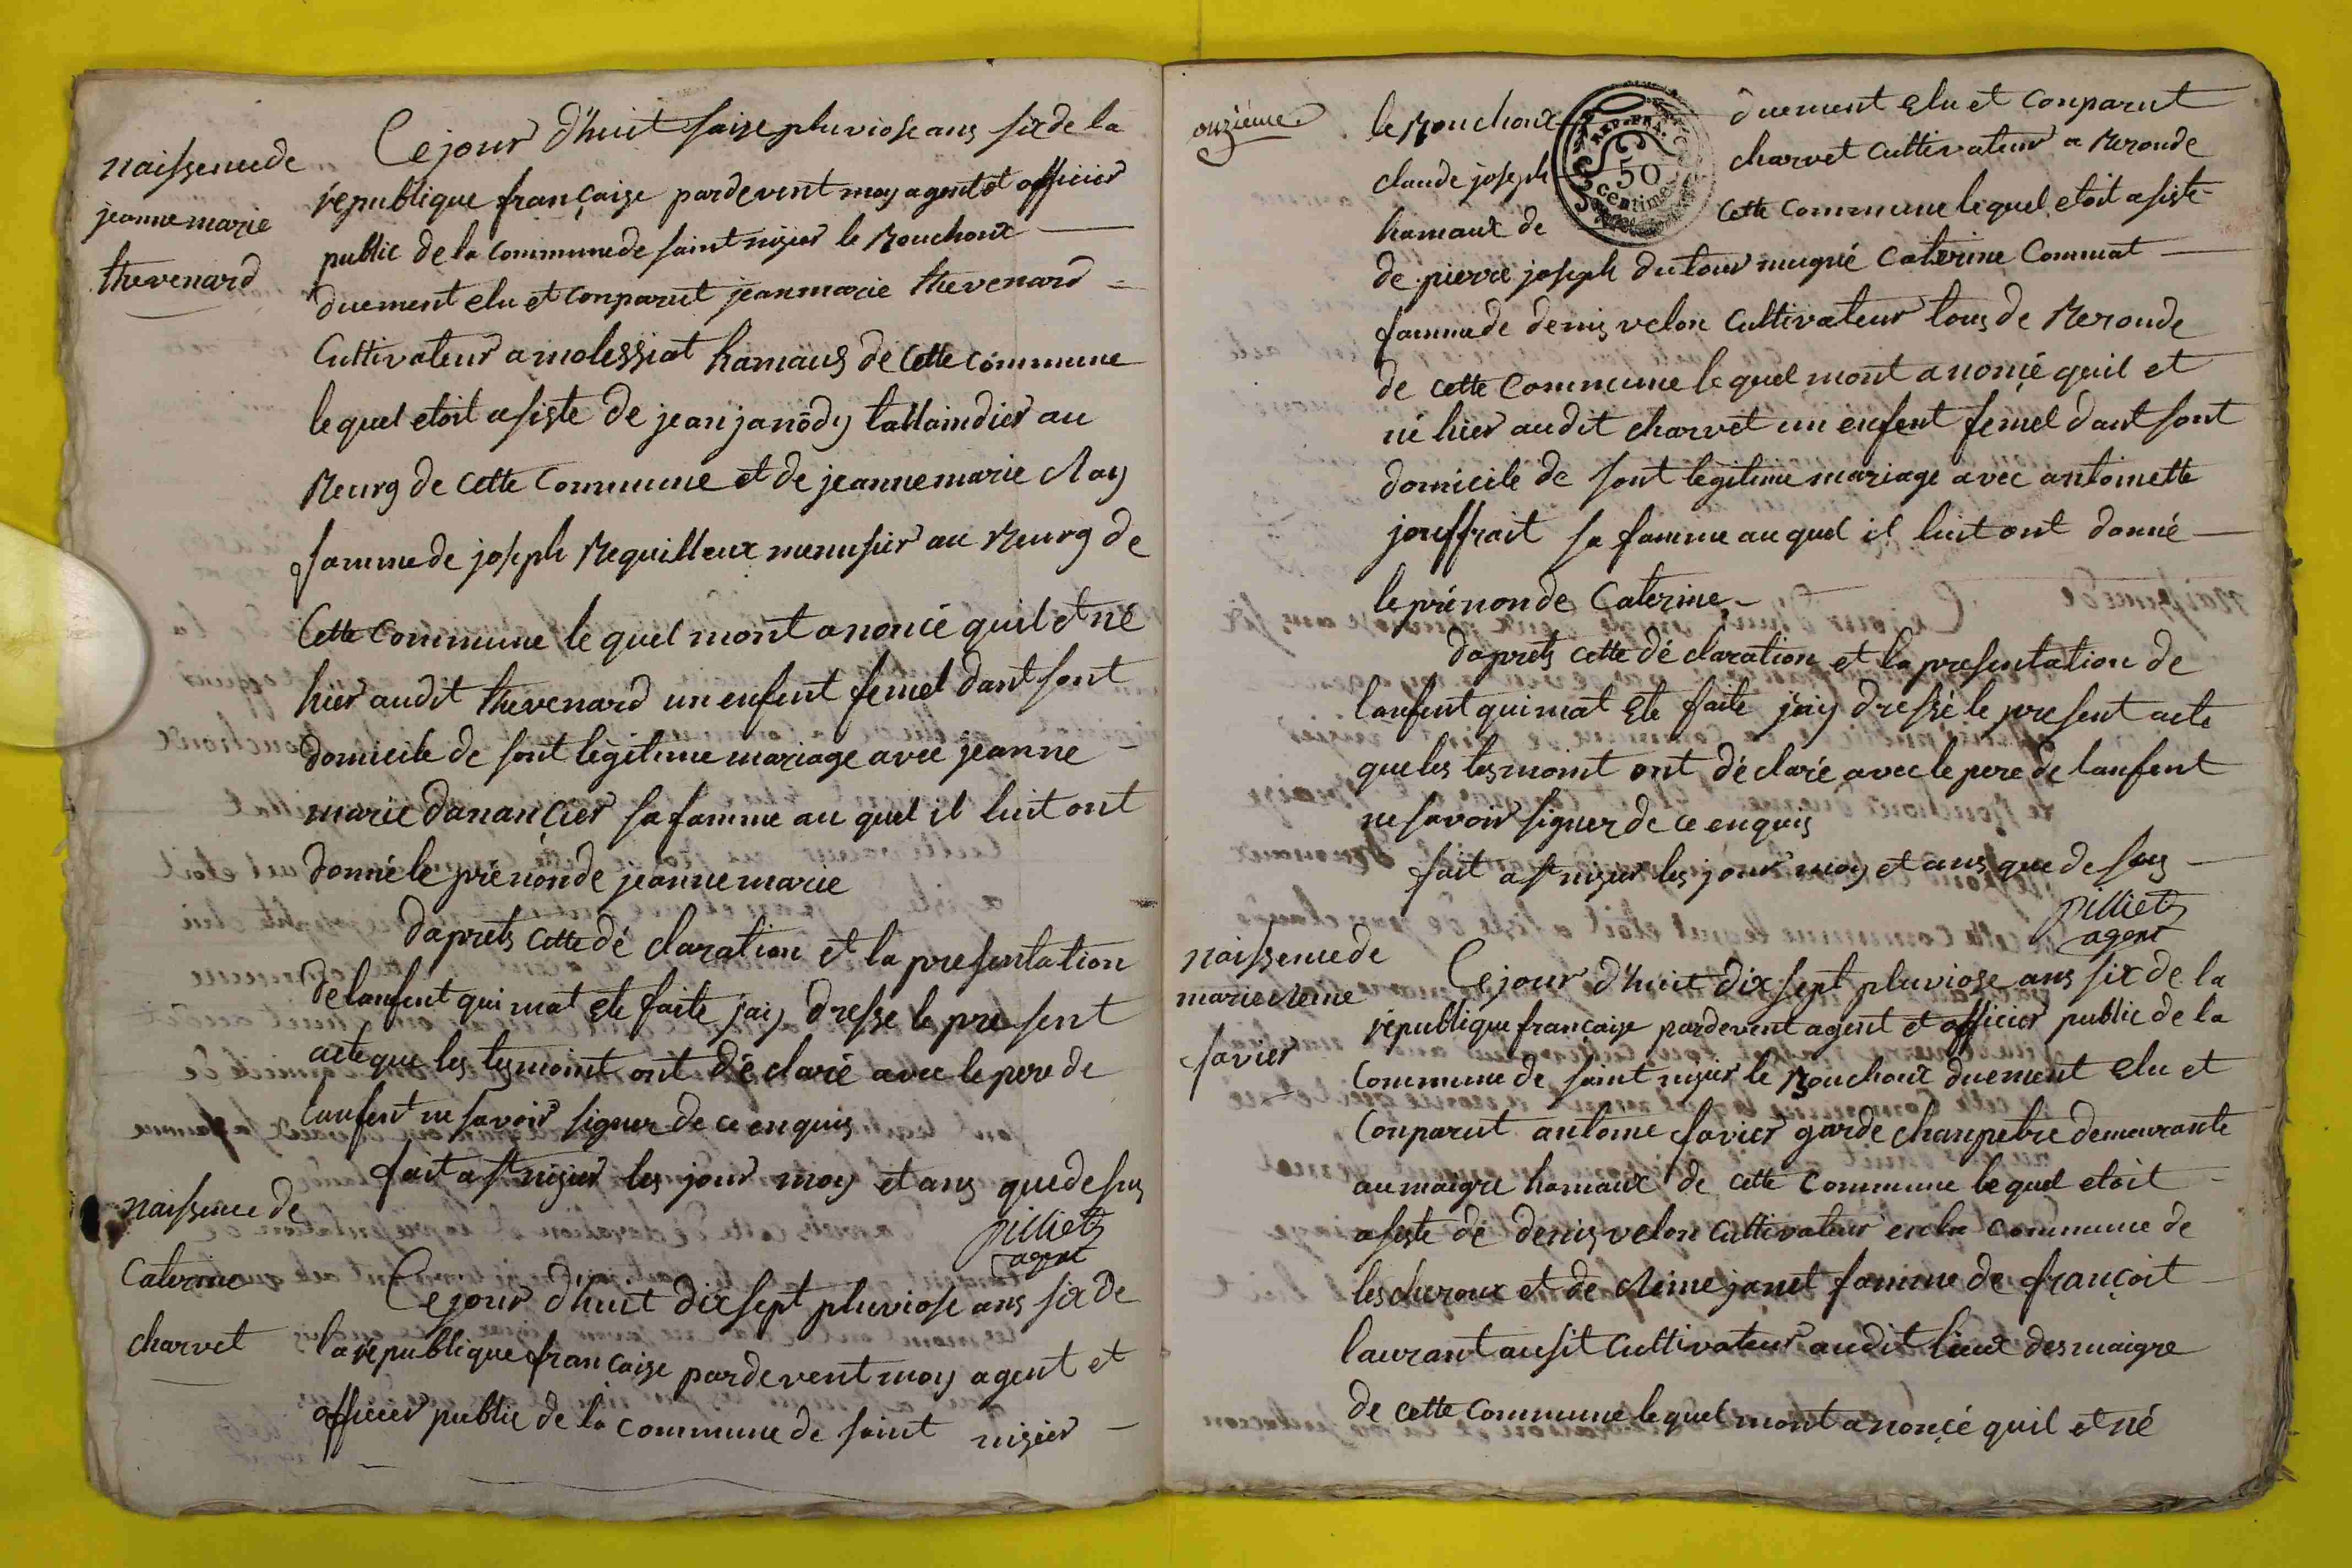 naissence de
jeanne marie
thevenard
Ce jour d'huit saise pluviose ans six de la
republique française pardevent moy agent et officier
public de la commune de saint nizier le Bouchoux
duement elu et conparut jeanmarie thevenard
Cultivateur a molessiat hamaus de cette commune
le quel etoit asiste de jean janödy tallaindier au
Bourg de cette Commune et de jeannemarie Nay
famme de joseph Requilleux menusier au Bourg de
Cette Commune le quel mont anoncé quil et né
hier audit thevenard un enfent femel dant sont
domicile de sont legitime mariage avec jeanne
marie dananÇier sa famme au quel il luit ont
donné le prénon de jeannemarie
daprets cette dé claration et la presentation
de lanfent qui mat ete faite jaiy dresse le present
acte que les tesmoint ont dé claré avec le pere de
lanfent ne savoir signer de ce enquis
fait a st nizier les jour moy et ans que de sus
pilliet
agent
naissence de
Caterine
charvet
Ce jour d'huit dix sept pluviose ans six de
la republique française pardevent moy agent et
officier public de la commune de saint nizier
onzieme
le Bouchoux duement elu et conparut
claude joseph charvet cultivateur a Beronde
hamaux de cette commune le quel etoit asiste
REP. FRA.
50
centimes
de pierre joseph dutour mugné Caterine Commat
famme de denis velon cultivateur tous de Beronde
de cette Commune le quel mont anoncé quil et
né hier audit charvet un enfent femel dant sont
domicile de sont legitime mariage avec antoinette
jouffrait sa famme au quel il luit ont donné
le prénon de Caterine
daprets cette dé claration et la presentation de
lanfent qui mat ete faite jaiy dressé le present acte
que les tesmoint ont dé claré avec le pere de lanfent
ne savoir signer de ce enquis
fait a st nizier les jour moy et ans que de sus
pilliet
agent
naissence de
marie Reine
favier
Ce jour d'huit dix sept pluviose ans six de la
republique française pardevent agent et officier public de la
Commune de saint nizier le Bouchoux duement elu et
Conparut antoine favier garde chanpetre demeurante
au maigre hamaux de cette Commune le quel etoit
asiste de denis velon cultivateur en la commune de
lescheroux et de Reine janet famme de françoit
laurant ausit cultivateur audit lieux des maigre
de cette Commune le quel mont anoncé quil et né